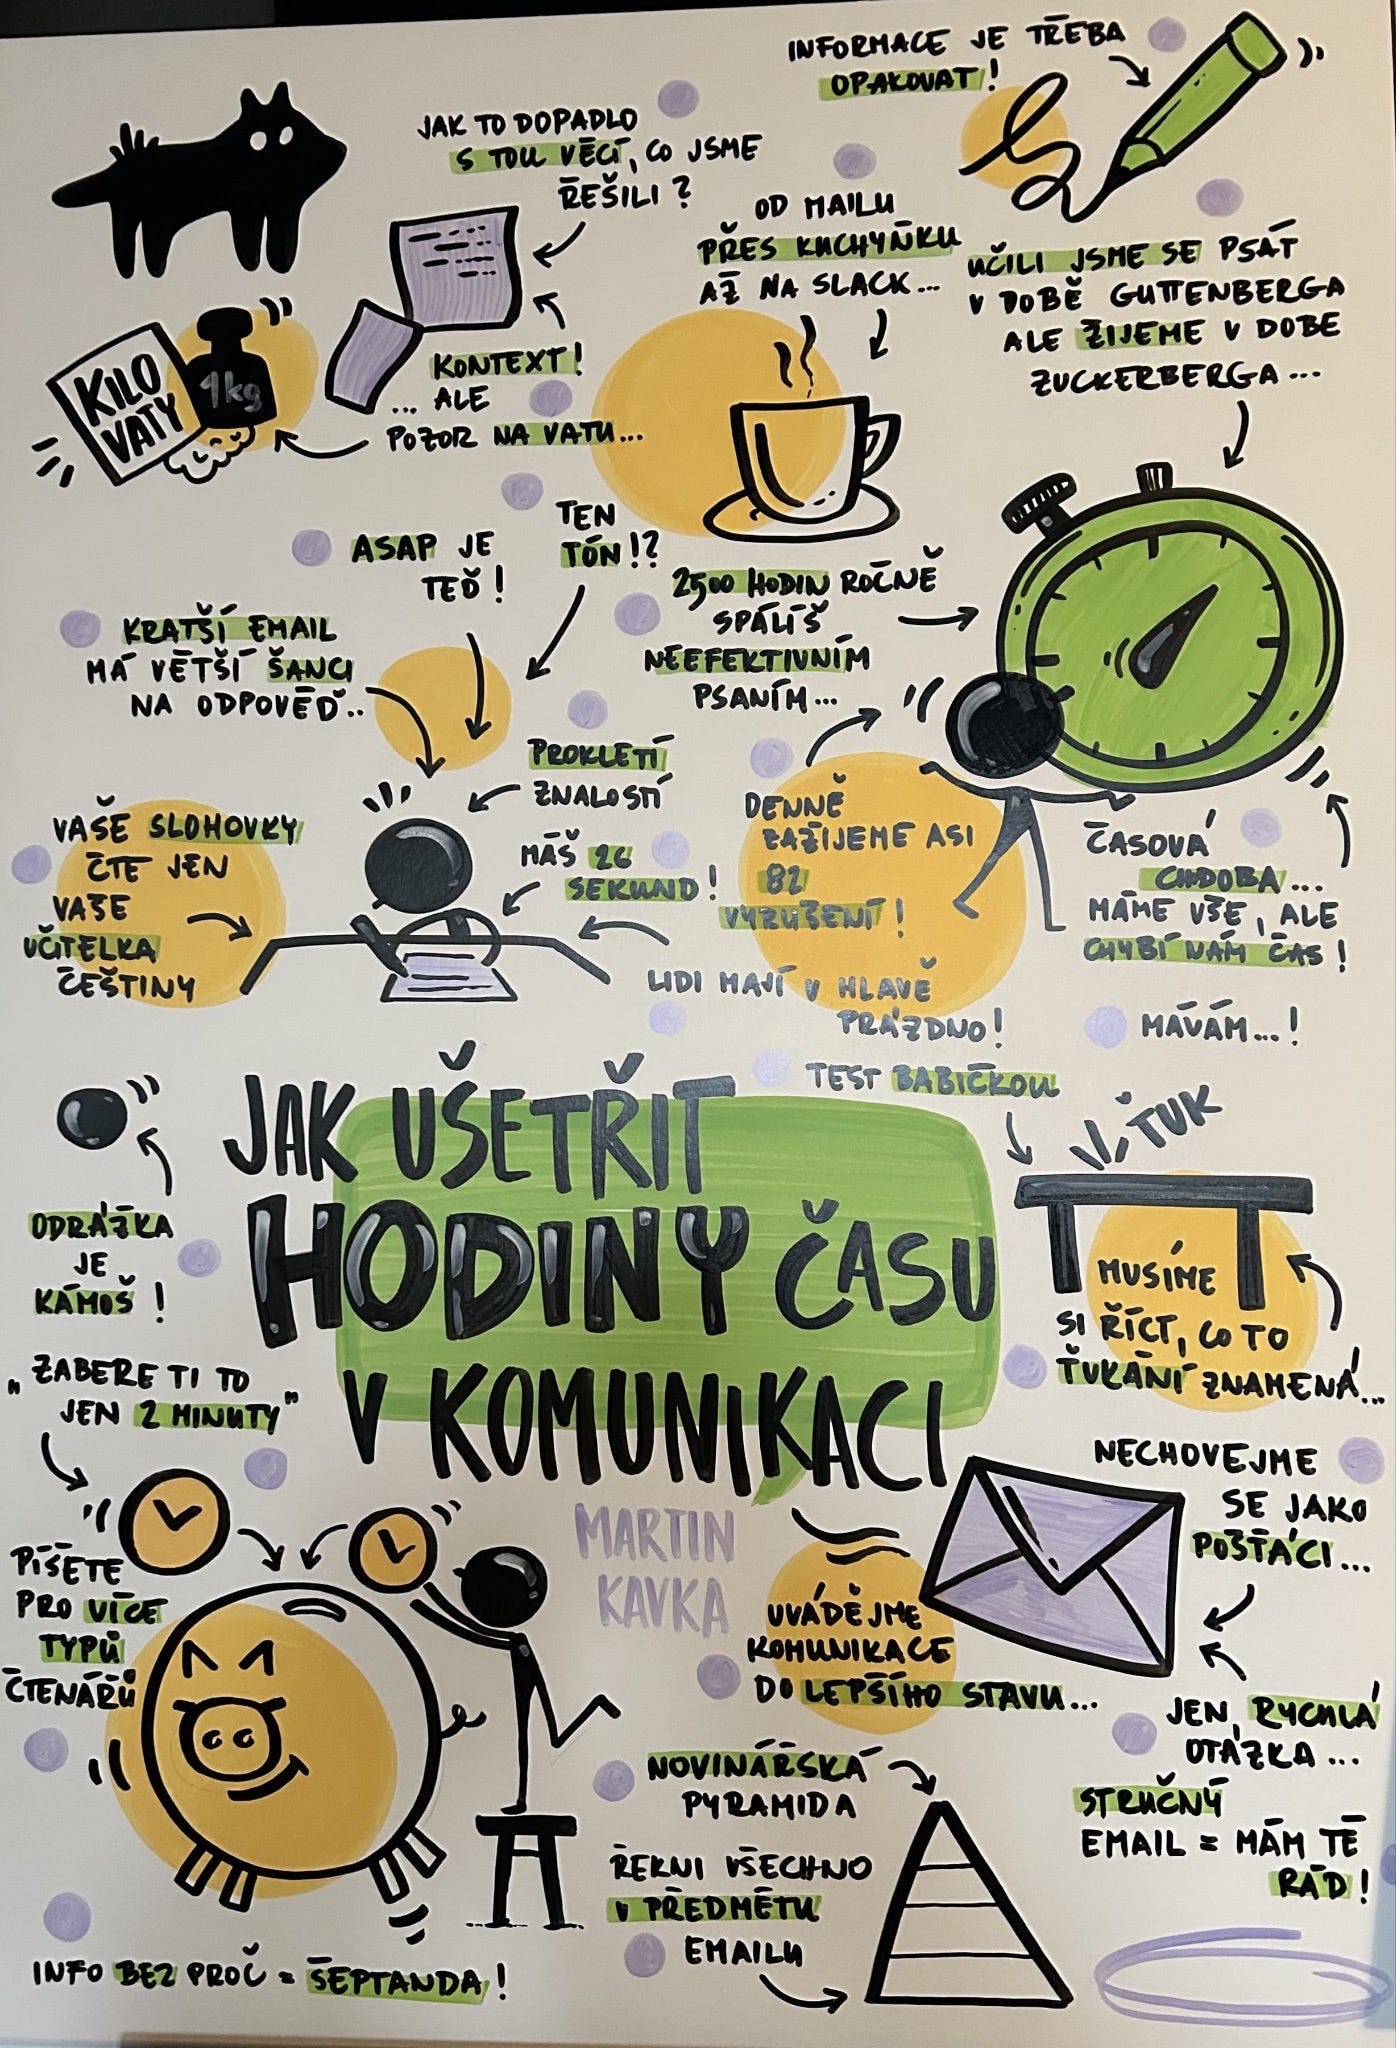 INFORMACE JE TŘEBA
OPAKOVAT!
JAK TO DOPADLO
S TOU VĚCÍ, CO JSME
ŘEŠILI?
OD MAILU
PŘES KUCHYŇKU
AŽ NA SLACK...
UČILI JSME SE PSÁT
V DOBĚ GUTTENBERGA
ALE ŽIJEME V DOBE
ZUCKERBERGA...
KILO
VATY
1kg
KONTEXT!
... ALE
POZOR NA VATU...
ASAP JE
TEĎ!
TEN
TÓN!?
2500 HODIN ROČNĚ
SPÁLÍŠ
NEEFEKTIVNÍM
PSANÍM...
KRATŠÍ EMAIL
MÁ VĚTŠÍ ŠANCI
NA ODPOVĚĎ..
PROKLETÍ
ZNALOSTÍ
MÁŠ 26
SEKUND!
DENNĚ
ZAŽIJEME ASI
82
VYRUŠENÍ!
ČASOVÁ
CHDOBA...
MÁME VŠE, ALE
CHYBÍ NÁM ČAS!
VAŠE SLOHOVKY
ČTE JEN
VAŠE
UČITELKA
ČEŠTINY
LIDI MAJÍ V HLAVĚ
PRÁZDNO!
MÁVÁM...!
TEST BABIČKOU
ŤUK
JAK UŠETŘIT
HODINY ČASU
V KOMUNIKACI
MARTIN
KAVKA
ODRÁŽKA
JE
KÁMOŠ!
MUSÍME
SI ŘÍCT, CO TO
ŤUKÁNÍ ZNAMENÁ...
„ZABERE TI TO
JEN 2 MINUTY"
NECHOVEJME
SE JAKO
POŠŤÁCI...
PÍŠETE
PRO VÍCE
TYPŮ
ČTENÁŘŮ
UVÁDĚJME
KOMUNIKACE
DO LEPŠÍHO STAVU...
JEN, RYCHLÁ
OTÁZKA...
NOVINÁŘSKÁ
PYRAMIDA
STRUČNÝ
EMAIL = MÁM TĚ
RÁD!
ŘEKNI VŠECHNO
V PŘEDMĚTU
EMAILU
INFO BEZ PROČ = ŠEPTANDA!